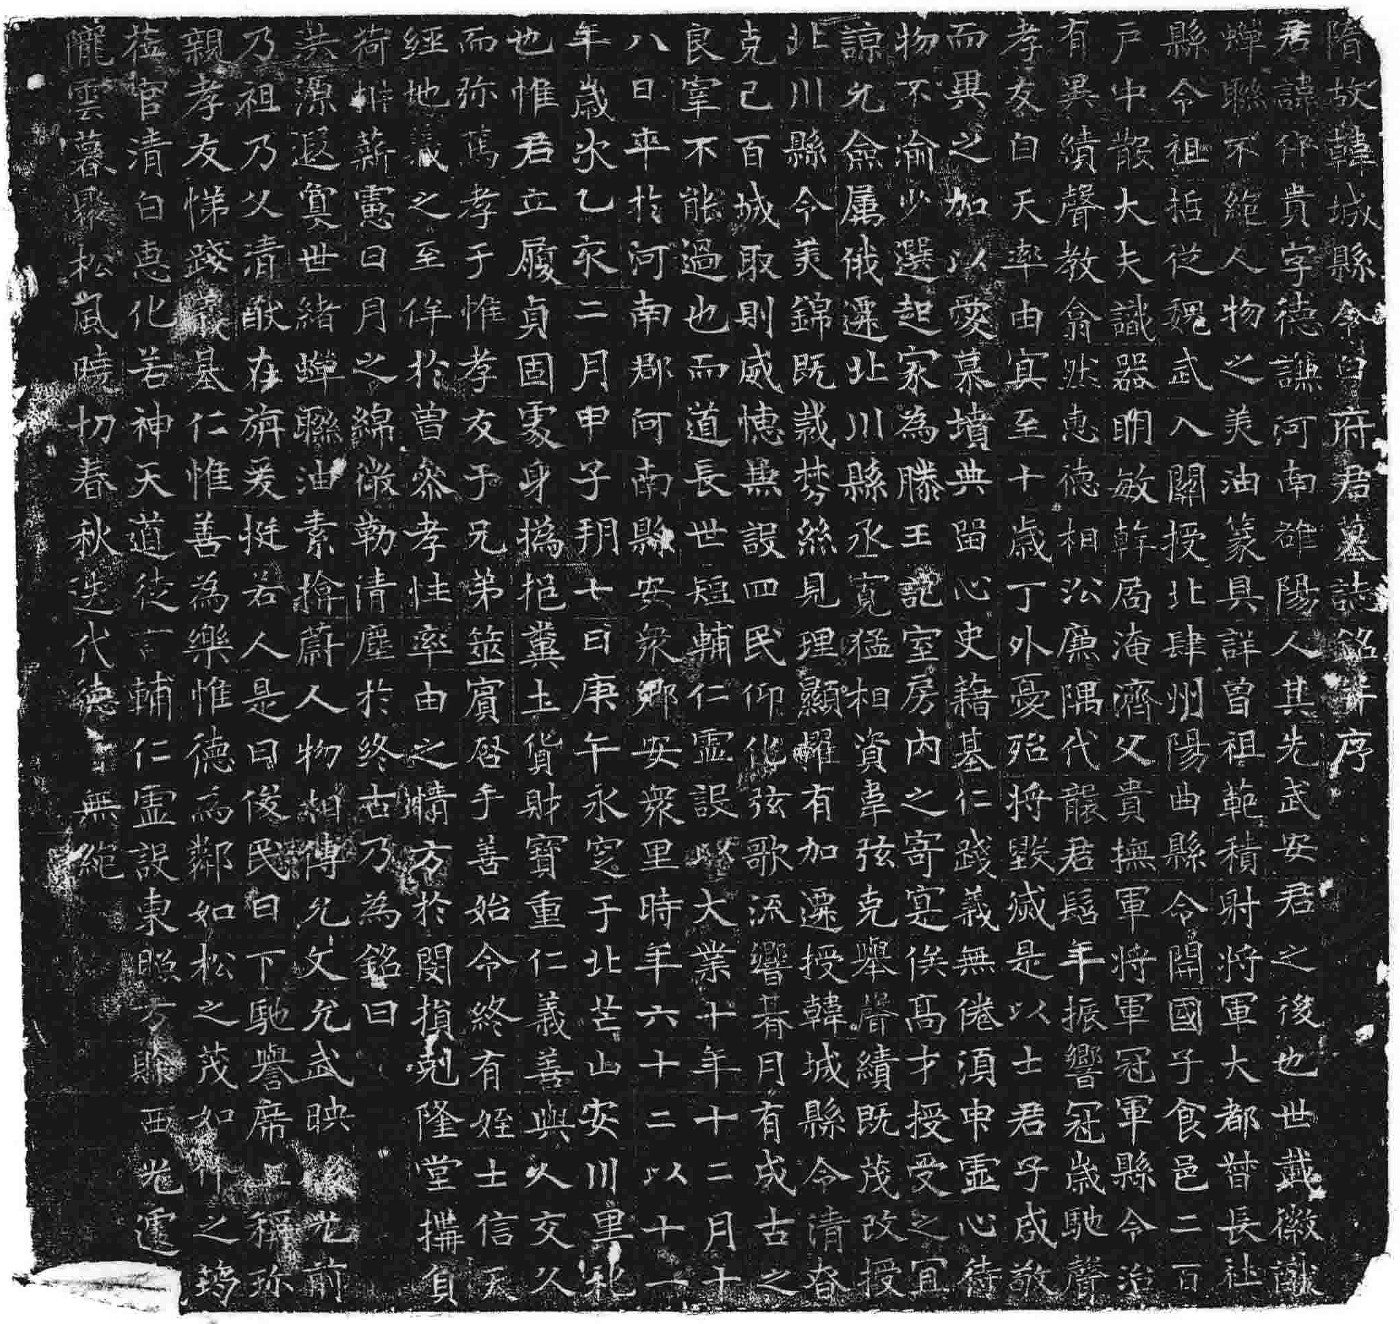 隋故韓城縣令白府君墓誌銘并序
君諱仵貴字德謙河南雒陽人其先武安君之後也世載徽猷
蟬聯不絶人物之美油篆具詳曽祖範積射将軍大都督長社
縣令祖括従魏武入關授北肆州陽曲縣令開國子食邑二百
戸中散大夫識器明敏幹局淹濟父貴撫軍将軍冠軍縣令治
有異績聲教翕然恵德相沿廉隅代襲君髫年振響冠歳馳聲
孝友自天率由冥至十歳丁外憂殆将毀滅是以士君子咸敬
而異之加以愛慕墳典留心史籍基仁踐義無倦湏申霊心待
物不渝少選起家為滕王記室房内之寄寔俟髙才授受之冝
諒允僉属俄遷北川縣丞寛猛相資韋弦克舉聲績既茂改授
北川縣令美錦既裁棼絲見理顯燿有加遷授韓城縣令清昚
克己百城取則威憓無設四民仰化弦歌流響朞月有成古之
良宰不能過也而道長世短輔仁霊設以大業十年十二月十
八日卒於河南郡河南縣安衆郷安衆里時年六十二以十一
年歳次乙亥二月甲子玥七日庚午永窆于北芒山安川里礼
也惟君立履貞固處身撝挹糞土貨財寳重仁義善與人交久
而弥篤孝于惟孝友于兄弟筮賓啓手善始令終有姪士信天
經地義之至侔於曽参孝性率由之情方於閔損尅隆堂搆負
荷析薪慮日月之綿微勒清塵於終古乃為銘曰
洪源遐寘世緒蟬聯油素掞蔚人物相傳允文允武映後光前
乃祖乃父清猷在旃爰挺若人是曰俊民日下馳譽席上稱珎
親孝友悌踐義基仁惟善為樂惟德為鄰如松之茂如竹之筠
莅官清白恵化若神天道徒言輔仁霊設東照方賒西光遽
隴雲暮暴松風時切春秋迭代德無絶